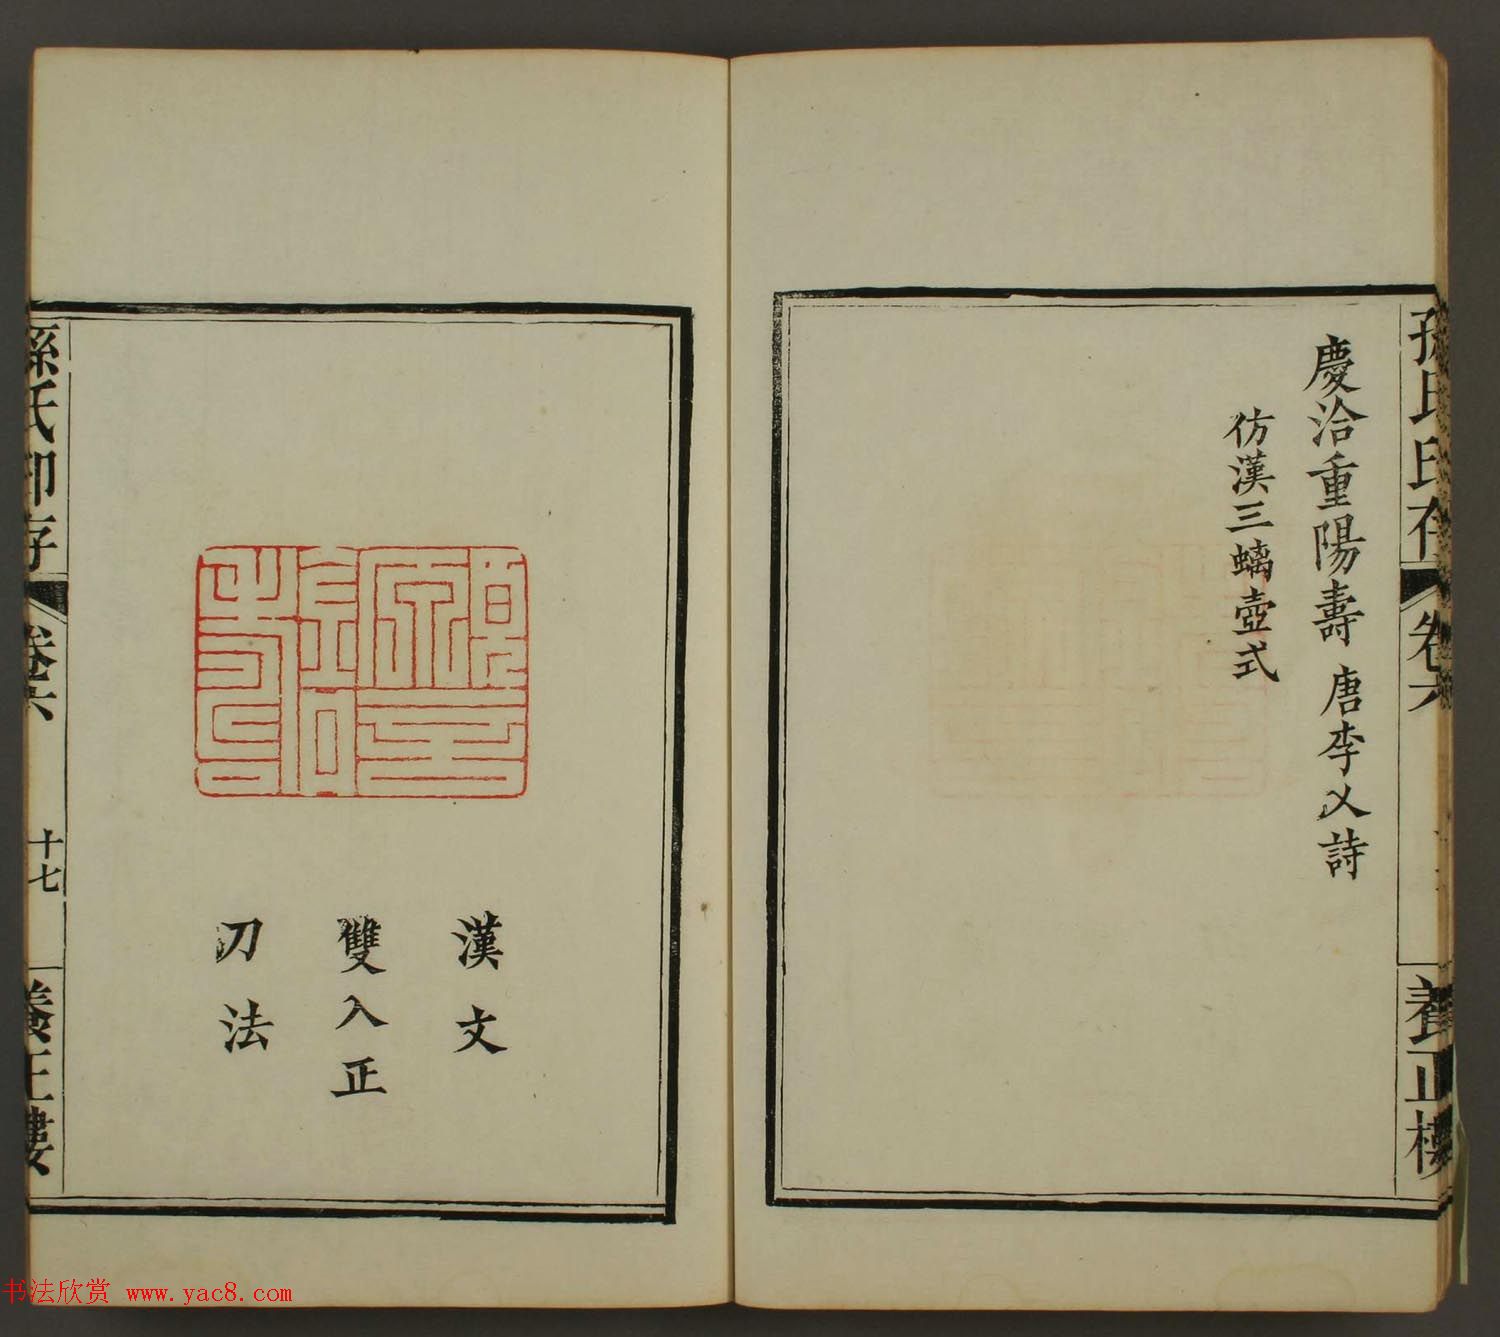 孫氏印存
卷六
養正樓
慶洽重陽壽 唐李乂詩
仿漢三螭壺式
漢文
雙入正
刀法
孫氏印存
卷六
十七
養正樓
书法欣赏 www.yac8.com